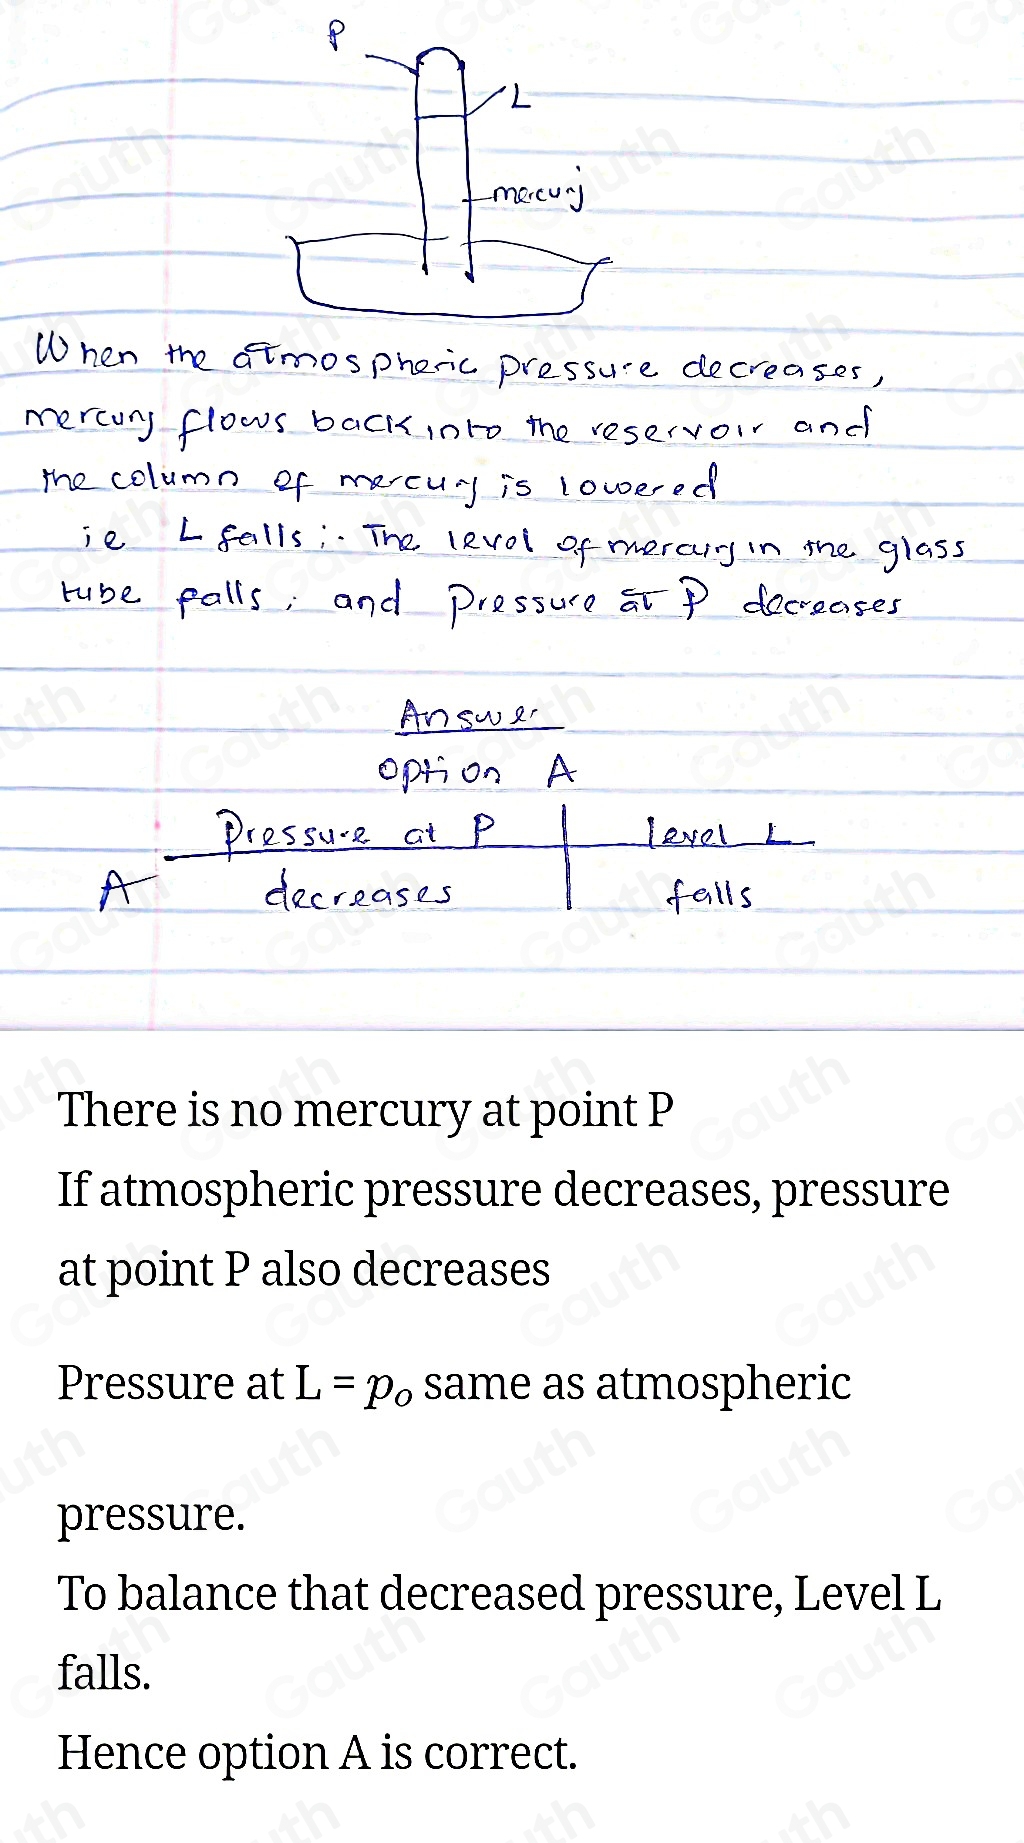 P
L
mercury
When the atmospheric pressure decreases,
mercury flows back into the reservoir and
the column of mercury is lowered
ie L falls ;. The level of mercury in the glass
tube falls ; and Pressure at P decreases
Answer
option A
Pressure at P Level L
A decreases falls
There is no mercury at point P
If atmospheric pressure decreases, pressure
at point P also decreases
Pressure at L = pₒ same as atmospheric
pressure.
To balance that decreased pressure, Level L
falls.
Hence option A is correct.
Gauth